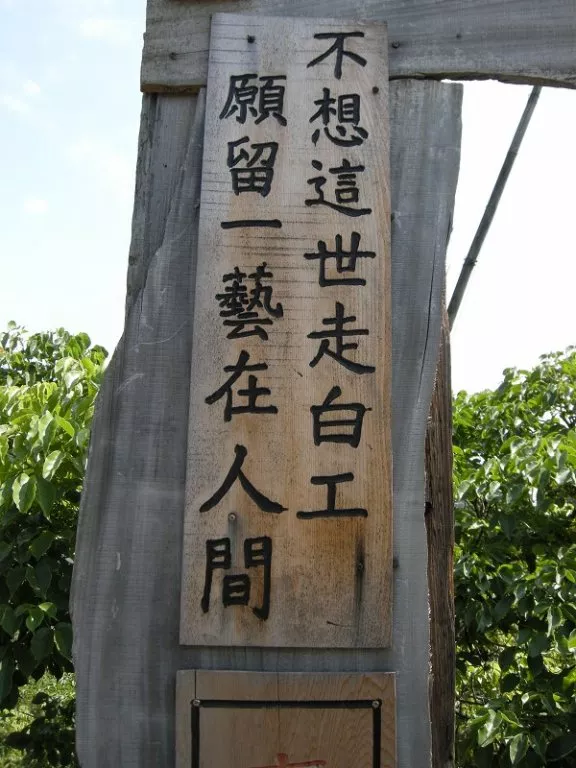 不想這世走白工
願留一藝在人間